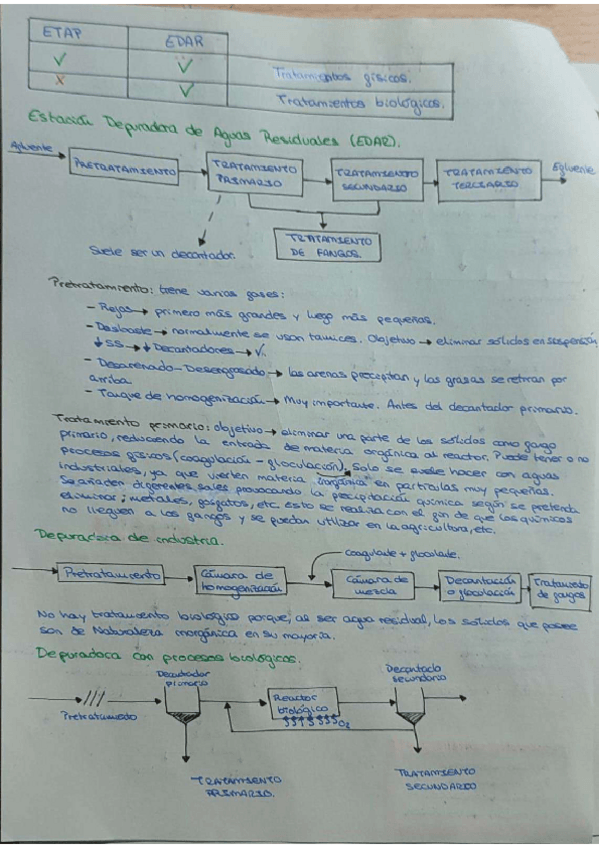 ETAP EDAR
✓ ✓ Tratamientos físicos.
X ✓ Tratamientos biológicos.
Estación Depuradora de Aguas Residuales (EDAR).
Afluente PRETRATAMIENTO TRATAMIENTO PRIMARIO TRATAMIENTO SECUNDARIO TRATAMIENTO TERCIARIO Efluente
Suele ser un decantador. TRATAMIENTO DE FANGOS.
Pretratamiento: tiene varias fases:
- Rejas → primero más grandes y luego más pequeñas.
- Desbaste → normalmente se usan tamices. Objetivo → eliminar sólidos en suspensión
↓SS → ↓Decantadores → V.
- Desarenado-Desengrasado → las arenas precipitan y las grasas se retiran por
arriba.
- Tanque de homogenización → Muy importante. Antes del decantador primario.
Tratamiento primario: objetivo → eliminar una parte de los sólidos como fango
primario, reduciendo la entrada de materia orgánica al reactor. Puede tener o no
procesos físicos (coagulación - floculación), solo se suele hacer con aguas
industriales, ya que vierten materia inorgánica en partículas muy pequeñas.
Se añaden diferentes sales provocando la precipitación química según se pretenda
eliminar; metales, fosfatos, etc. esto se realiza con el fin de que los químicos
no lleguen a los fangos y se puedan utilizar en la agricultura, etc.
Depuradora de industria.
coagulante + floculante.
Pretratamiento Cámara de homogenización Cámara de mezcla Decantación o floculación Tratamiento de fangos
No hay tratamiento biológico porque, al ser agua residual, los sólidos que posee
son de Naturaleza inorgánica en su mayoría.
Depuradora con procesos biológicos.
Decantador primario Decantado secundario
Pretratamiento Reactor biológico O2
TRATAMIENTO PRIMARIO. TRATAMIENTO SECUNDARIO